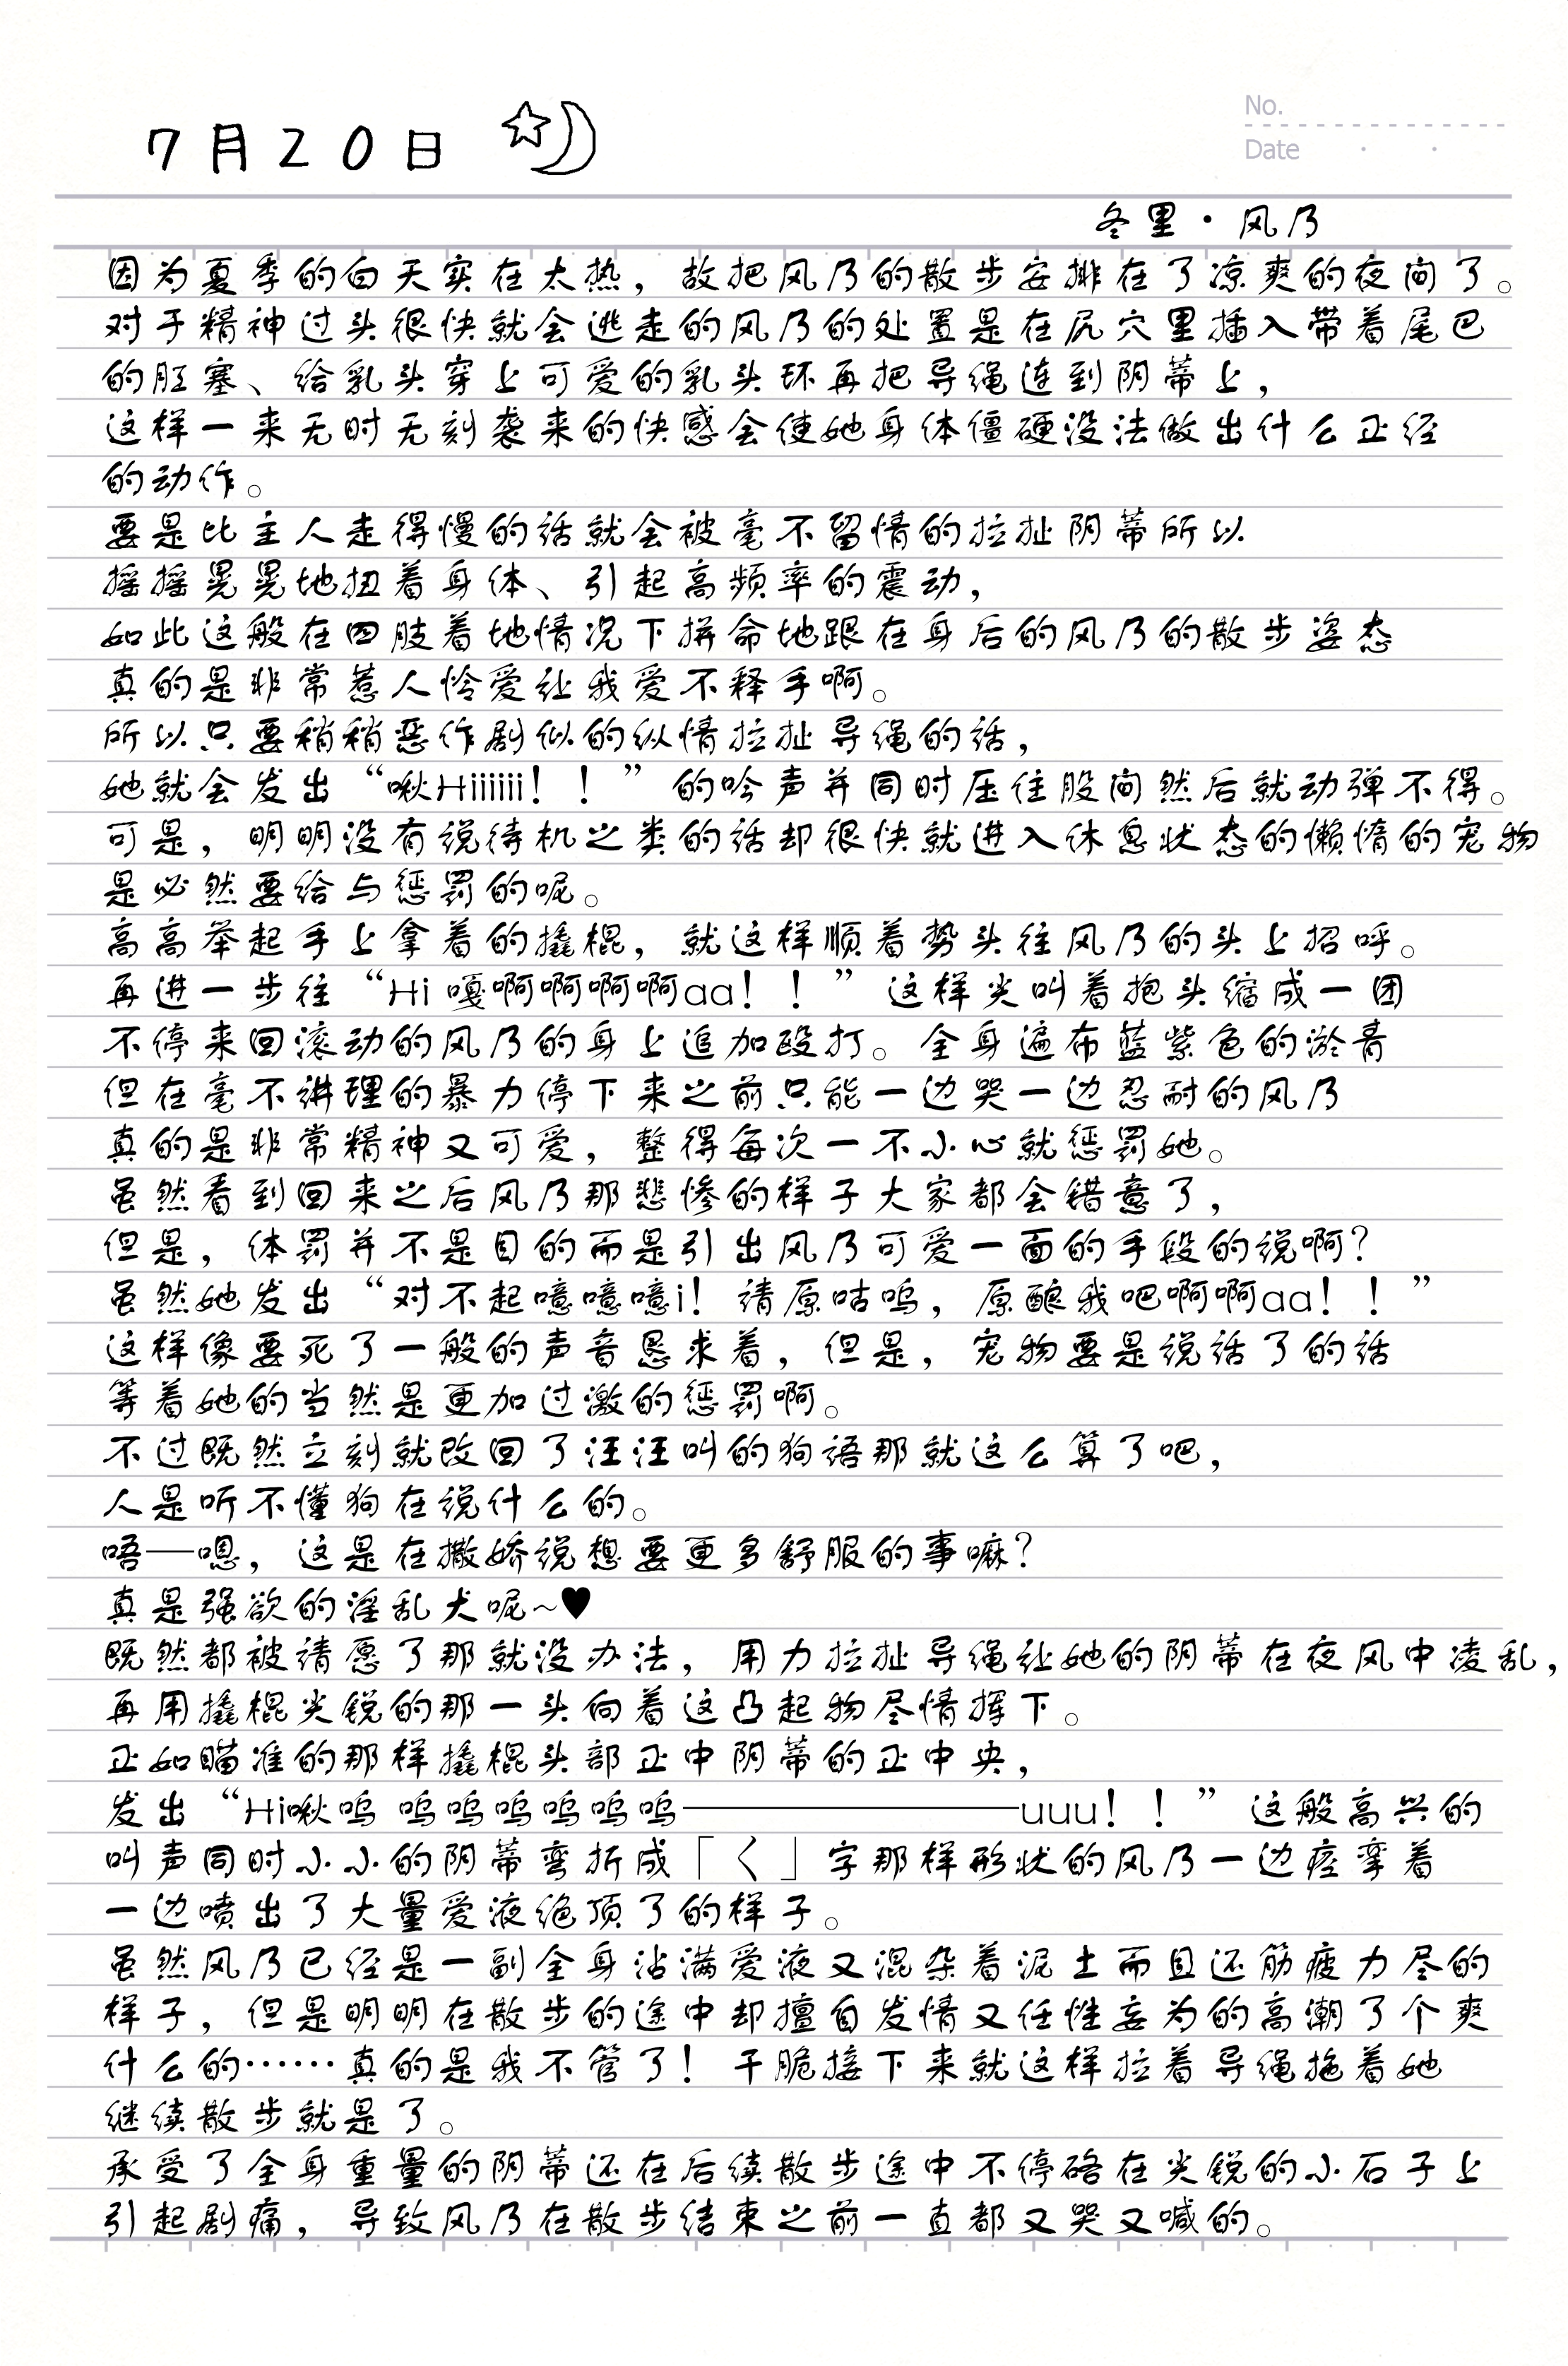 7月20日
No.
Date
冬里·风乃
因为夏季的白天实在太热，故把风乃的散步安排在了凉爽的夜间了。
对于精神过头很快就会逃走的风乃的处置是在尻穴里插入带着尾巴
的肛塞、给乳头穿上可爱的乳头环再把导绳连到阴蒂上，
这样一来无时无刻袭来的快感会使她身体僵硬没法做出什么正经
的动作。
要是比主人走得慢的话就会被毫不留情的拉扯阴蒂所以
摇摇晃晃地扭着身体、引起高频率的震动，
如此这般在四肢着地情况下拼命地跟在身后的风乃的散步姿态
真的是非常惹人怜爱让我爱不释手啊。
所以只要稍稍恶作剧似的纵情拉扯导绳的话，
她就会发出“啾Hiiiiii！！”的吟声并同时压住股间然后就动弹不得。
可是，明明没有说待机之类的话却很快就进入休息状态的懒惰的宠物
是必然要给与惩罚的呢。
高高举起手上拿着的撬棍，就这样顺着势头往风乃的头上招呼。
再进一步往“Hi 嘎啊啊啊啊aa！！”这样尖叫着抱头缩成一团
不停来回滚动的风乃的身上追加殴打。全身遍布蓝紫色的淤青
但在毫不讲理的暴力停下来之前只能一边哭一边忍耐的风乃
真的是非常精神又可爱，整得每次一不小心就惩罚她。
虽然看到回来之后风乃那悲惨的样子大家都会错意了，
但是，体罚并不是目的而是引出风乃可爱一面的手段的说啊？
虽然她发出“对不起噫噫噫i！请原咕呜，原酿我吧啊啊aa！！”
这样像要死了一般的声音恳求着，但是，宠物要是说话了的话
等着她的当然是更加过激的惩罚啊。
不过既然立刻就改回了汪汪叫的狗语那就这么算了吧，
人是听不懂狗在说什么的。
唔——嗯，这是在撒娇说想要更多舒服的事嘛？
真是强欲的淫乱犬呢~♥
既然都被请愿了那就没办法，用力拉扯导绳让她的阴蒂在夜风中凌乱，
再用撬棍尖锐的那一头向着这凸起物尽情挥下。
正如瞄准的那样撬棍头部正中阴蒂的正中央，
发出“Hi啾呜 呜呜呜呜呜呜———————uuu！！”这般高兴的
叫声同时小小的阴蒂弯折成「く」字那样形状的风乃一边痉挛着
一边喷出了大量爱液绝顶了的样子。
虽然风乃已经是一副全身沾满爱液又混杂着泥土而且还筋疲力尽的
样子，但是明明在散步的途中却擅自发情又任性妄为的高潮了个爽
什么的……真的是我不管了！干脆接下来就这样拉着导绳拖着她
继续散步就是了。
承受了全身重量的阴蒂还在后续散步途中不停硌在尖锐的小石子上
引起剧痛，导致风乃在散步结束之前一直都又哭又喊的。